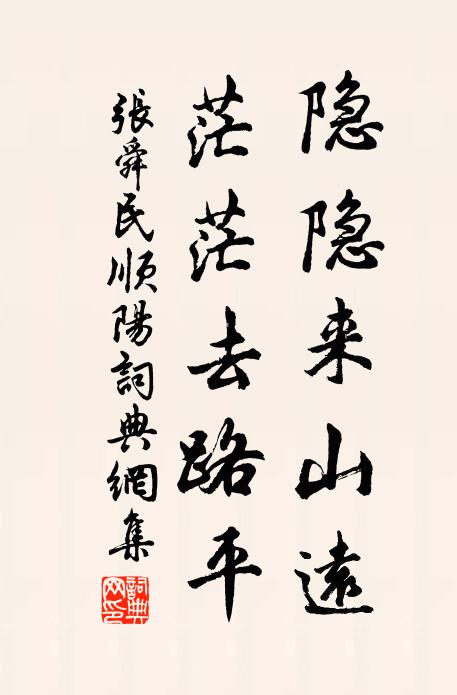 隐隐来山遠
茫茫去路平
張舜民順陽詞典網集
詞典網印